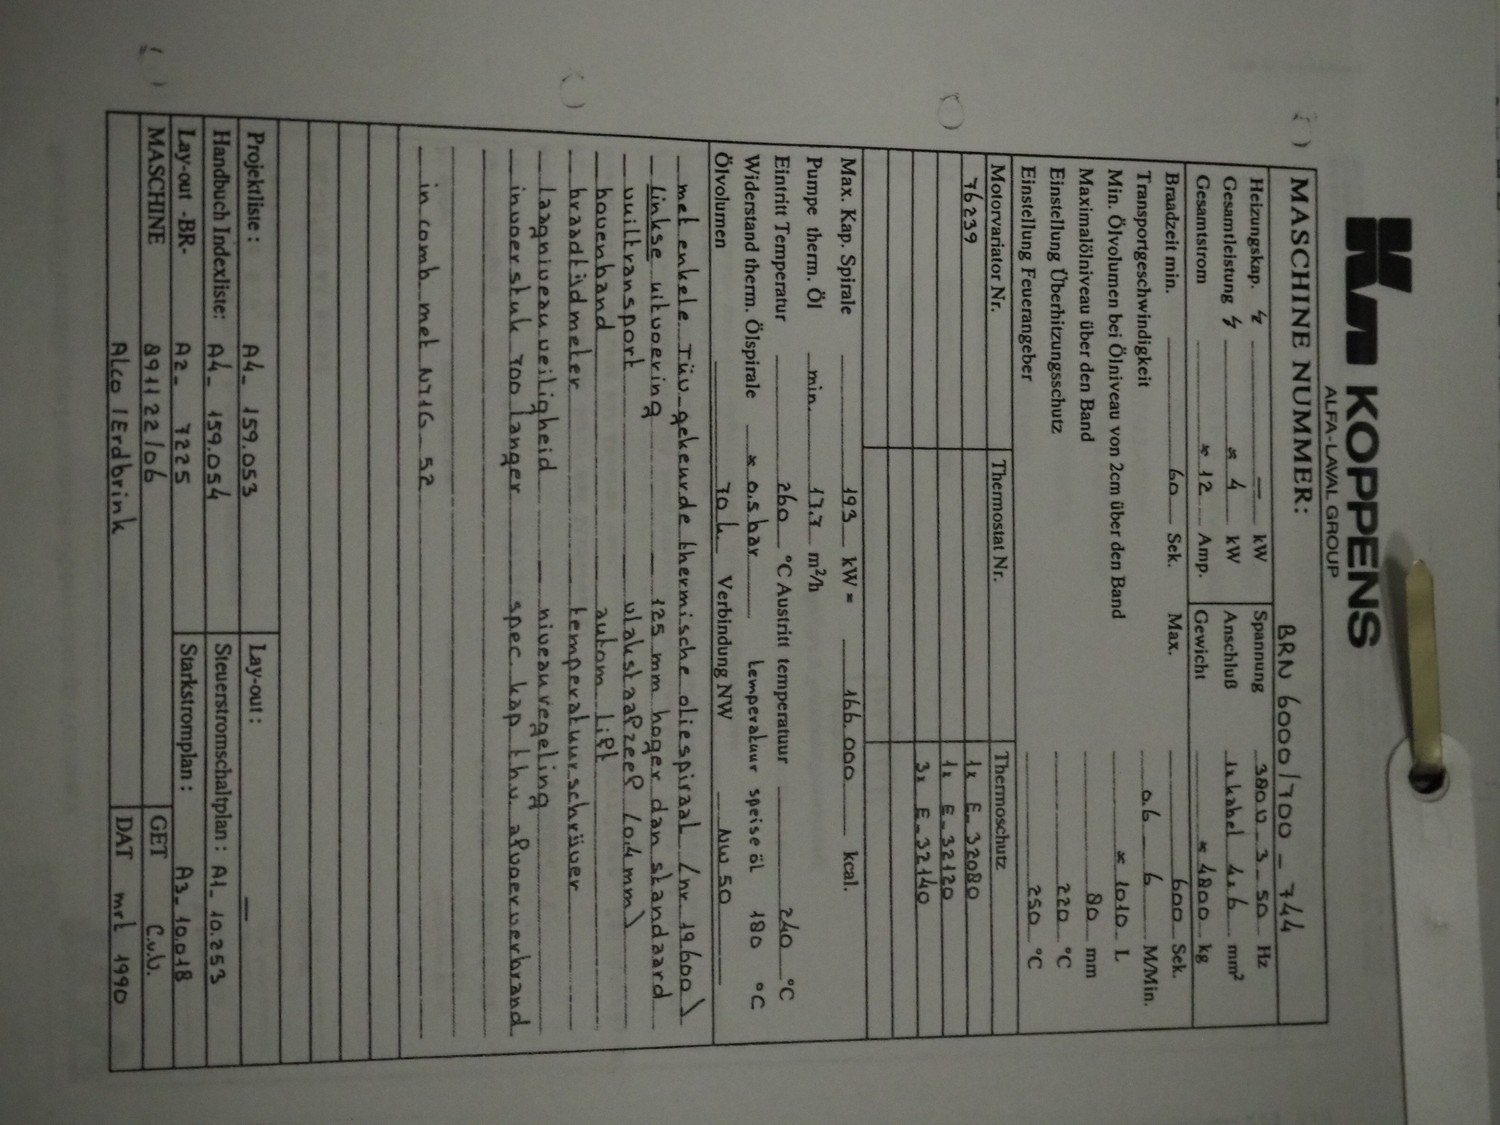 KOPPENS
ALFA-LAVAL GROUP
MASCHINE NUMMER: BRN 6000/700 - 744
Heizungskap. ↯ — kW Spannung 380 V - 3 - 50 Hz
Gesamtleistung ↯ ≈ 4 kW Anschluß 1x kabel 4x6 mm²
Gesamtstrom ≈ 12 Amp. Gewicht ≈ 4800 kg
Braadzeit min. 60 Sek. Max. 600 Sek.
Transportgeschwindigkeit 0.6 - 6 M/Min.
Min. Ölvolumen bei Ölniveau von 2cm über den Band ≈ 1010 L
Maximalölniveau über den Band 80 mm
Einstellung Überhitzungsschutz 220 °C
Einstellung Feuerangeber 250 °C
Motorvariator Nr. Thermostat Nr. Thermoschutz
76239 1x E-32080
1x E-32120
3x E-32140
Max. Kap. Spirale 193 kW = 166.000 kcal.
Pumpe therm. Öl min. 17.7 m³/h
Eintritt Temperatur 260 °C Austritt temperatuur 240 °C
Widerstand therm. Ölspirale ≈ 0.5 bar temperatuur speise öl 180 °C
Ölvolumen 70 L Verbindung NW NW 50
met enkele TÜV-gekeurde thermische oliespiraal (nr 19.600)
linkse uitvoering 125 mm hoger dan standaard
vuiltransport vlakstaafzeef (0.4 mm)
bovenband autom. lift
braadtijdmeter temperatuurschrijver
laagniveauveiligheid niveauregeling
invoerstuk 700 langer spec. kap t.b.v. afvoerverbrand.
in comb met NJ1G - 52
Projektliste: A4- 159.053 Lay-out: —
Handbuch Indexliste: A4- 159.054 Steuerstromschaltplan: A1- 10.253
Lay-out -BR- A2- 7225 Starkstromplan: A3- 10.018
MASCHINE 891122/06 GET C.v.G.
Alco / Erdbrink DAT mrt 1990